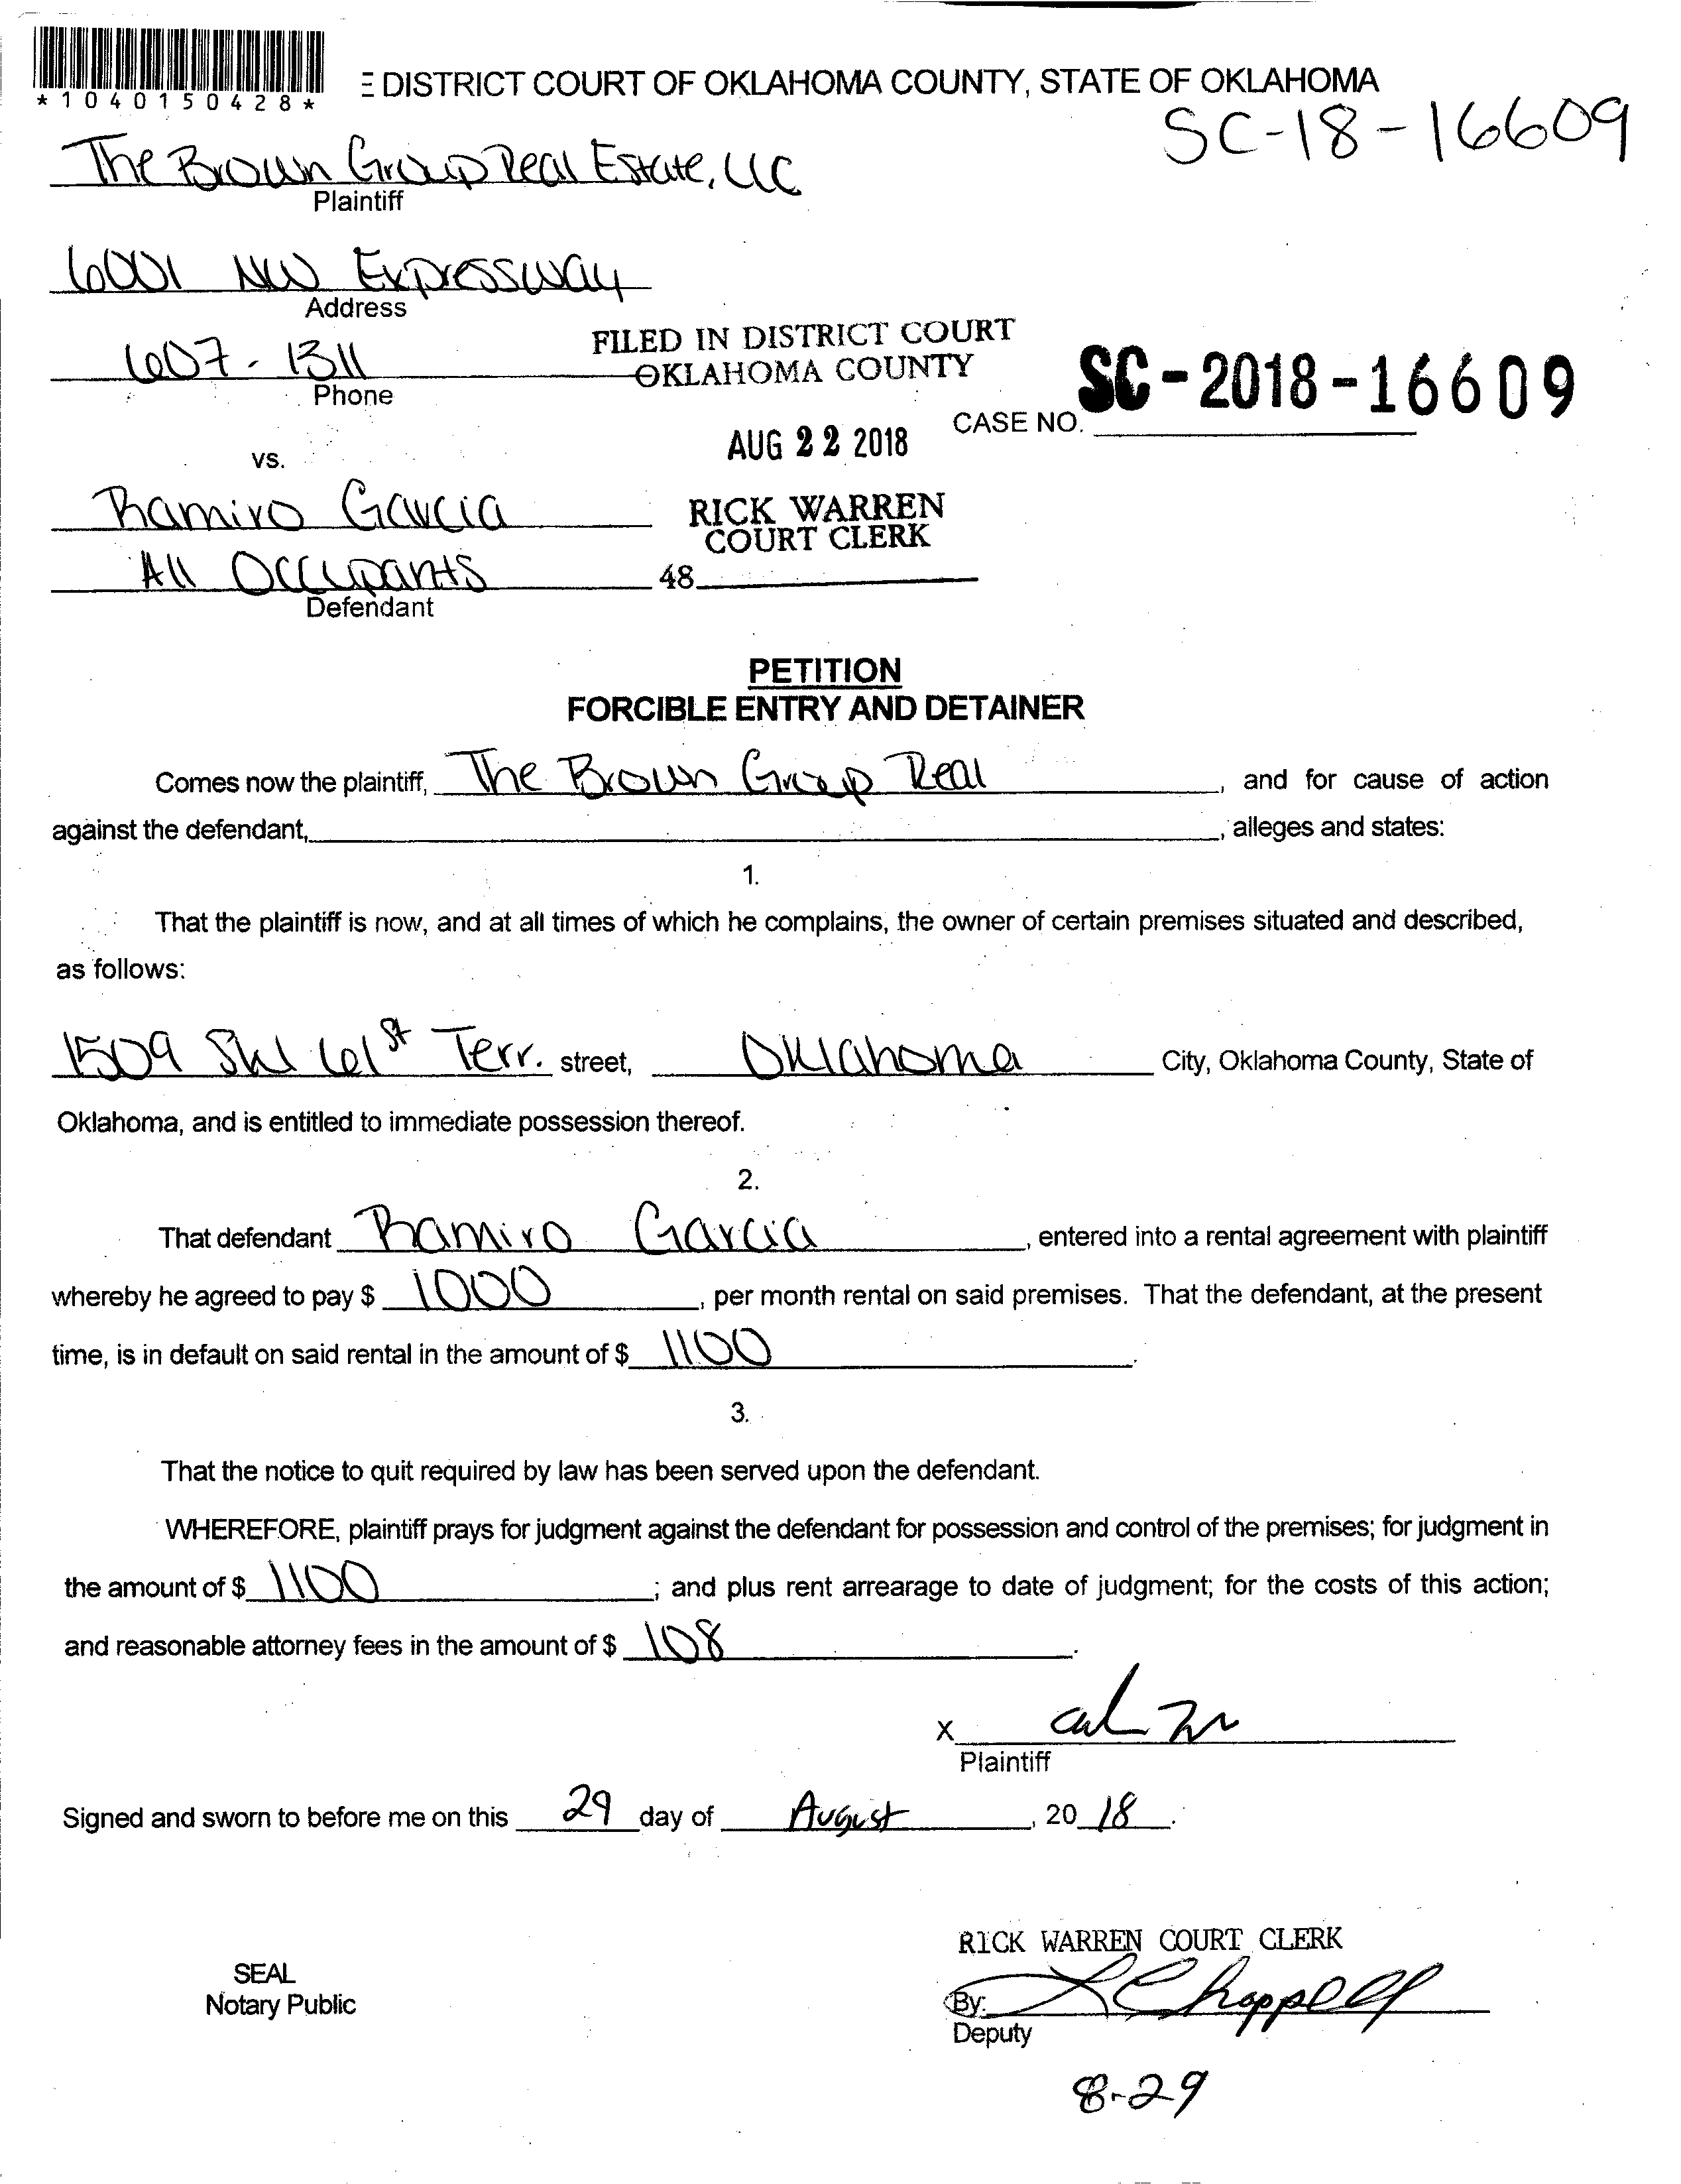 *1040150428*
E DISTRICT COURT OF OKLAHOMA COUNTY, STATE OF OKLAHOMA
SC-18-16609
The Brown Group Real Estate, LLC
Plaintiff
6001 NW Expressway
Address
607-1311
Phone
FILED IN DISTRICT COURT
OKLAHOMA COUNTY
SC-2018-16609
CASE NO.
AUG 22 2018
vs.
Ramiro Garcia
RICK WARREN
COURT CLERK
All Occupants
48
Defendant
PETITION
FORCIBLE ENTRY AND DETAINER
Comes now the plaintiff, The Brown Group Real, and for cause of action
against the defendant, , alleges and states:
1.
That the plaintiff is now, and at all times of which he complains, the owner of certain premises situated and described,
as follows:
1509 SW 61st Terr. street, Oklahoma City, Oklahoma County, State of
Oklahoma, and is entitled to immediate possession thereof.
2.
That defendant Ramiro Garcia, entered into a rental agreement with plaintiff
whereby he agreed to pay $ 1000, per month rental on said premises. That the defendant, at the present
time, is in default on said rental in the amount of $ 1100.
3.
That the notice to quit required by law has been served upon the defendant.
WHEREFORE, plaintiff prays for judgment against the defendant for possession and control of the premises; for judgment in
the amount of $ 1100; and plus rent arrearage to date of judgment; for the costs of this action;
and reasonable attorney fees in the amount of $ 108.
X
Plaintiff
Signed and sworn to before me on this 29 day of August, 20 18.
RICK WARREN COURT CLERK
SEAL
Notary Public
By: L Chappell
Deputy
8-29